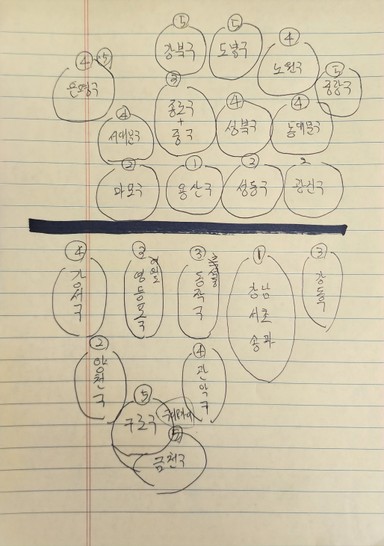 ⑤ ⑤
강북구 도봉구 ④
노원구
④ ⑤
은평구
③ ⑤
중랑구
종로구
+
중구
④ ④ ④
서대문구 성북구 동대문구
② ① ② 2
마포구 용산구 성동구 광진구
④ ② ③ ① ③
강서구 영등포구 여의도 동작구 강남 서초 송파 강동구
② ④
양천구 관악구
⑤
구로구
⑤
금천구